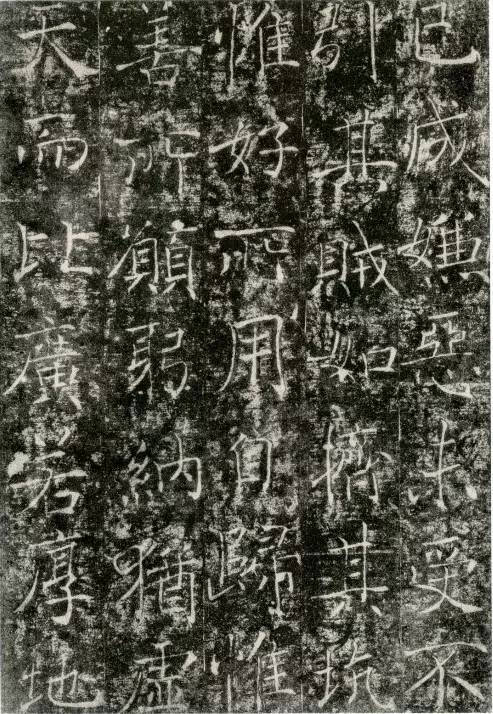 已成嫌惡未受不
其賊如擠其坑
惟好所用自歸惟
善所願弱納猶虛
天而比廣若厚地